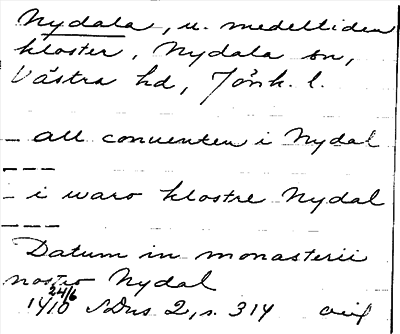 Nydala, u. medeltiden
kloster, Nydala sn,
Västra hd, Jönk. l.
_ all conuenten i Nydal
_ _ _
_ i waro klostre Nydal
_ _ _
Datum in monasterii
nostro Nydal
24/6
1410 SDns 2, s. 314